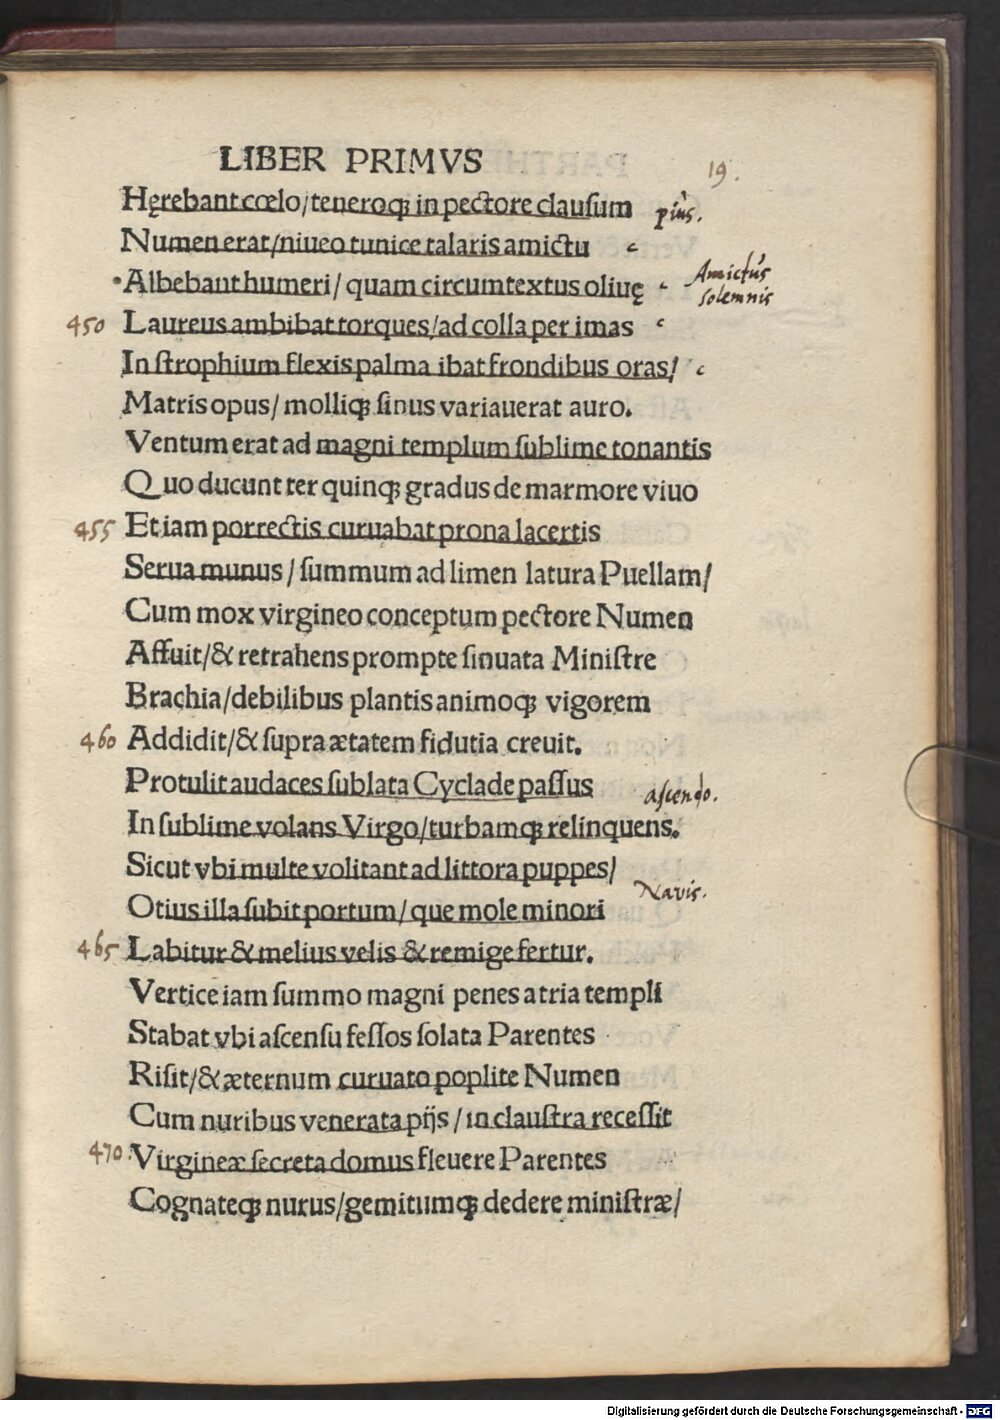 LIBER PRIMVS 19.
Hęrebant cœlo/teneroqꝫ in pectore clausum pius.
Numen erat/niueo tunice talaris amictu
Albebant humeri/ quam circumtextus oliuę Amictus solemnis
450 Laureus ambibat torques/ad colla per imas
In strophium flexis palma ibat frondibus oras/
Matris opus/ molliqꝫ sinus variauerat auro.
Ventum erat ad magni templum sublime tonantis
Quo ducunt ter quinqꝫ gradus de marmore viuo
455 Et iam porrectis curuabat prona lacertis
Serua munus/ summum ad limen latura Puellam/
Cum mox virgineo conceptum pectore Numen
Affuit/& retrahens prompte sinuata Ministre
Brachia/debilibus plantis animoqꝫ vigorem
460 Addidit/& supra ætatem fidutia creuit.
Protulit audaces sublata Cyclade passus ascendo.
In sublime volans Virgo/turbamqꝫ relinquens.
Sicut vbi multe volitant ad littora puppes/ Navis.
Otius illa subit portum/ que mole minori
465 Labitur & melius velis & remige fertur.
Vertice iam summo magni penes atria templi
Stabat vbi ascensu fessos solata Parentes
Risit/& æternum curuato poplite Numen
Cum nuribus venerata pijs/ in claustra recessit
470 Virgineæ secreta domus fleuere Parentes
Cognateqꝫ nurus/gemitumqꝫ dedere ministræ/
Digitalisierung gefördert durch die Deutsche Forschungsgemeinschaft - DFG